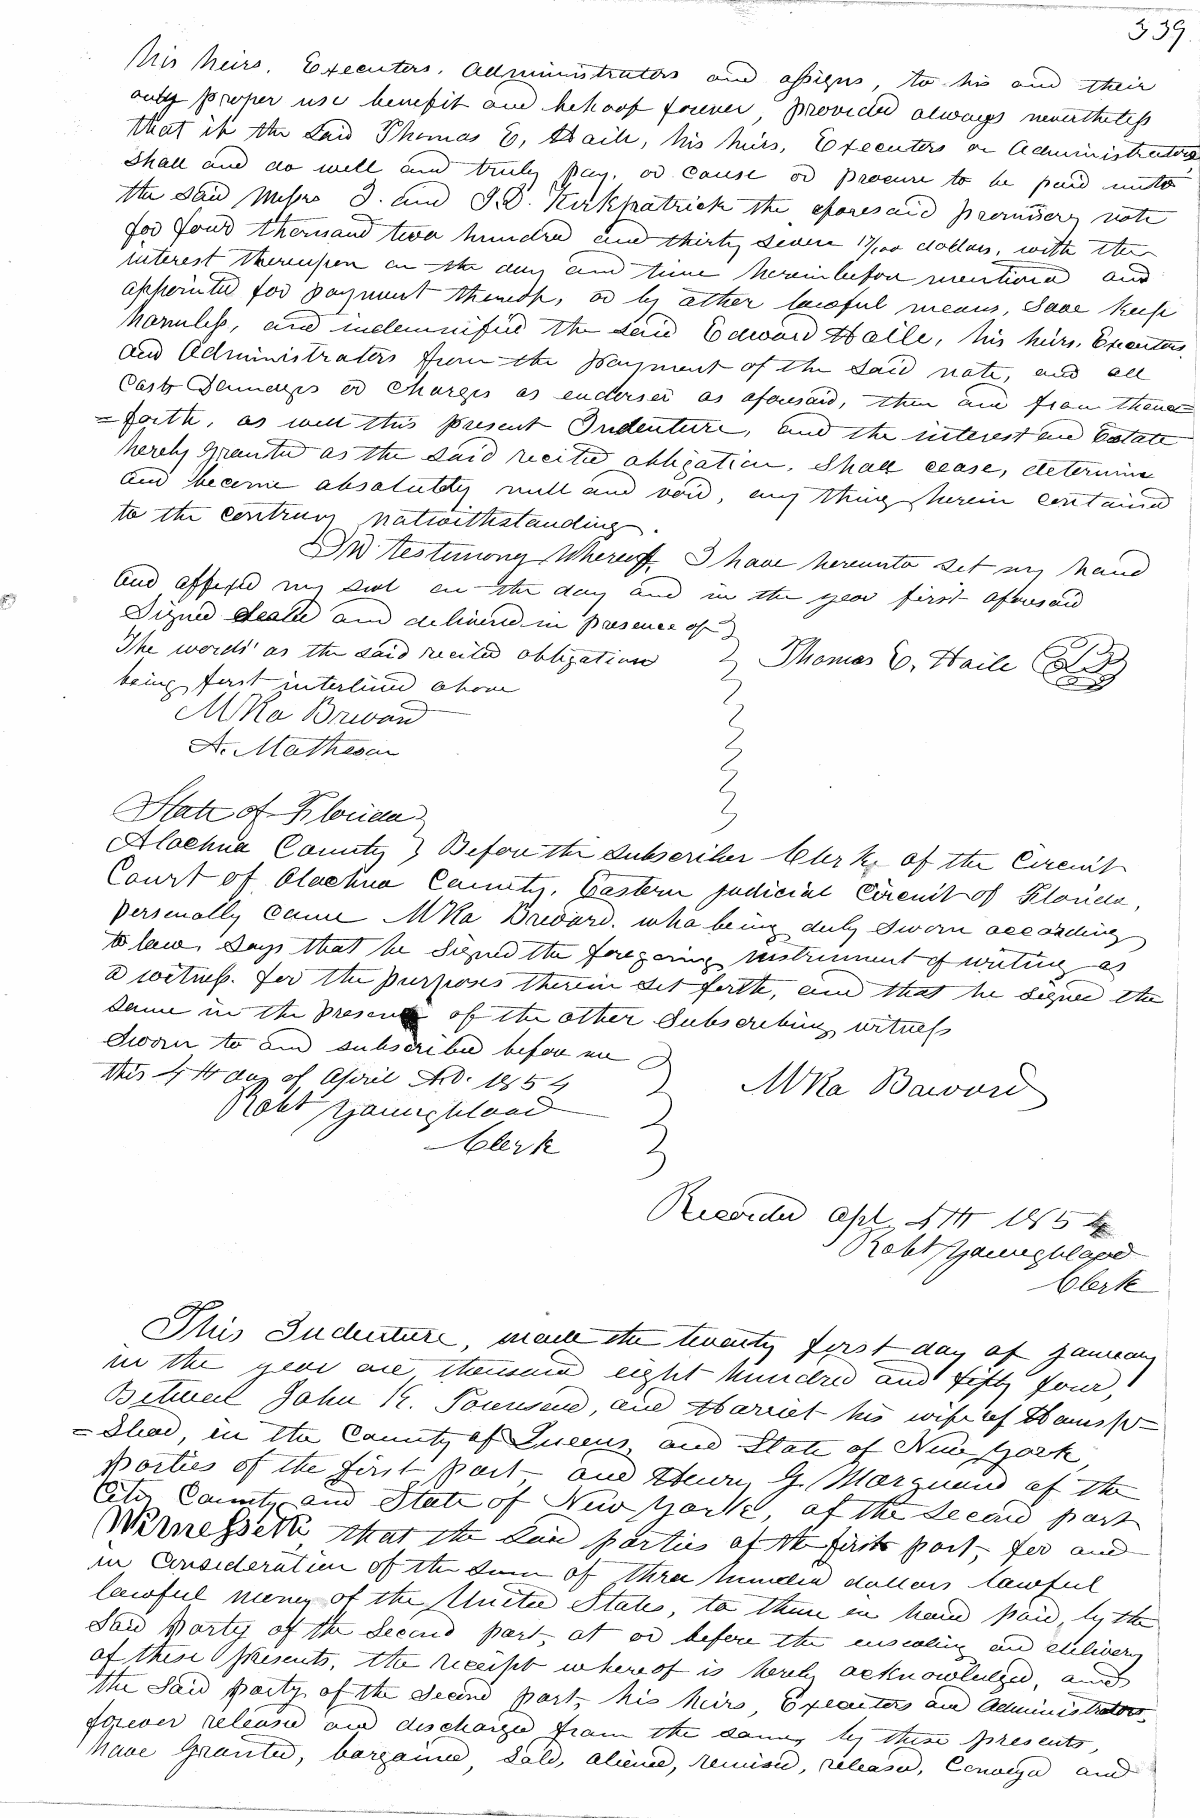 339
his heirs, Executors, Administrators and assigns, to his and their
only proper use benefit and behoof forever, provided always nevertheless
that if the said Thomas E, Haile, his heirs, Executors or Administrators
shall and do well and truly pay, or cause or procure to be paid unto
the said Messrs T. and J.D. Kirkpatrick the aforesaid promissory note
for four thousand two hundred and thirty seven 17/100 dollars, with the
interest thereupon on the day and time hereinbefore mentioned and
appointed for payment thereof, or by other lawful means, save keep
harmless, and indemnified the said Edward Haile, his heirs, Executors,
and Administrators from the payment of the said note, and all
Costs Damages or charges as endorser as aforesaid, then and from thence=
=forth, as well this present Indenture, and the interest and Estate
hereby granted as the said recited obligation, shall cease, determine
and become absolutely null and void, any thing herein contained
to the contrary natwithstanding.
In testimony Whereof, I have hereunto set my hand
and affixed my seal on the day and in the year first aforesaid
Signed Sealed and delivered in presence of
The words "as the said recited obligation
being first interlined above
Thomas E, Haile
MRa Brevard
A. Matheson
State of Florida
Alachua County } Before the subscriber Clerk of the Circuit
Court of Alachua County, Eastern judicial Circuit of Florida,
personally came MRa Brevard, who being duly sworn according
to law, says that he signed the foregoing instrument of writing as
a witness, for the purposes therein set forth, and that he signed the
same in the presence of the other subscribing witness
Sworn to and subscribed before me
this 4th day of April A.D. 1854
MRa Brevard
Robt Youngblood
Clerk
Recorded Apl 4th 1854
Robt Youngblood
Clerk
This Indenture, made the twenty first day of January
in the year one thousand eight hundred and fifty four,
Between John R. Townsend, and Harriet his wife of Hemsp=
=stead, in the County of Queens, and State of New York,
parties of the first part, and Henry G. Marquand of the
City County and State of New York, of the second part
Witnesseth, that the said parties of the first part, for and
in consideration of the sum of three hundred dollars lawful
lawful money of the United States, to them in hand paid, by the
said party of the second part, at or before the ensealing and delivery
of these presents, the receipt whereof is hereby acknowledged, and
the said party of the second part, his heirs, Executors and Administrators,
forever released and discharged from the same, by these presents,
have granted, bargained, sold, aliened, remised, released, Conveyed and